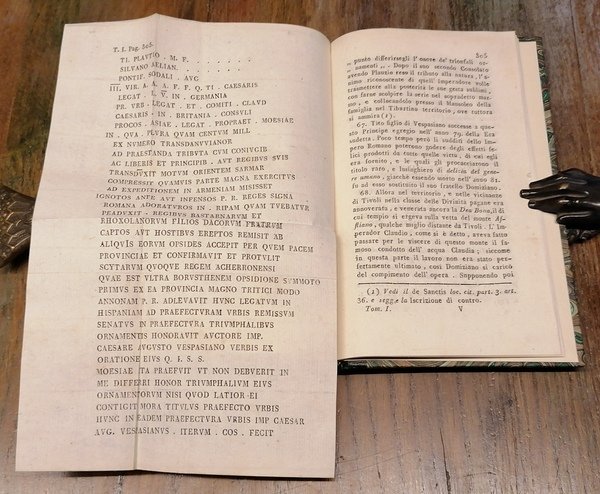 T. I. Pag. 305.
TI. PLAVTIO . M. F. . . . . . .
SILVANO AELIAN. . . . . . .
PONTIF. SODALI . AVG
III. VIR. A. A. A. F. F. Q. TI . CAESARIS
LEGAT . L. V. IN . GERMANIA
PR. VRB . LEGAT . ET . COMITI . CLAVD
CAESARIS . IN . BRITANIA . CONSVLI
PROCOS . ASIAE . LEGAT . PROPRAET . MOESIAE
IN . QVA . PLVRA QVAM CENTVM MILL
EX NVMERO TRANSDANVVIANOR
AD PRAESTANDA TRIBVTA CVM CONIVGIB
AC LIBERIS ET PRINCIPIB . AVT REGIBVS SVIS
TRANSDVXIT MOTVM ORIENTEM SARMAR
COMPRESSIT QVAMVIS PARTE MAGNA EXERCITVS
AD EXPEDITIONEM IN ARMENIAM MISISSET
IGNOTOS ANTE AVT INFENSOS P. R. REGES SIGNA
ROMANA ADORATVROS IN . RIPAM QVAM TVEBATVR
PEADVXIT . REGIBVS BASTARNARVM ET
RHOXOLANORVM FILIOS DACORVM FRATRVM
CAPTOS AVT HOSTIBVS EREPTOS REMISIT AB
ALIQVIS EORVM OPSIDES ACCEPIT PER QVEM PACEM
PROVINCIAE ET CONFIRMAVIT ET PROTVLIT
SCYTTARVM QVOQVE REGEM ACHERRONENSI
QVAE EST VLTRA BORVSTHENEM OPSIDIONE SVMMOTO
PRIMVS EX EA PROVINCIA MAGNO TRITICI MODO
ANNONAM P. R. ADLEVAVIT HVNC LEGATVM IN
HISPANIAM AD PRAEFECTVRAM VRBIS REMISSVM
SENATVS IN PRAEFECTVRA TRIVMPHALIBVS
ORNAMENTIS HONORAVIT AVCTORE IMP.
CAESARE AVGVSTO VESPASIANO VERBIS EX
ORATIONE EIVS Q. I. S. S.
MOESIAE ITA PRAEFVIT VT NON DEBVERIT IN
ME DIFFERRI HONOR TRIVMPHALIVM EIVS
ORNAMENTORVM NISI QVOD LATIOR EI
CONTIGIT MORA TITVLVS PRAEFECTO VRBIS
HVNC IN EADEM PRAEFECTVRA VRBIS IMP CAESAR
AVG. VESPASIANVS . ITERVM . COS . FECIT
305
punto differirsegli l'onore de' trionfali or-
„ namenti „ . Dopo il suo secondo Consolato
avendo Plauzio reso il tributo alla natura, l'a-
nimo riconoscente di quell'imperadore volle
trasmettere alla posterità le sue gesta sublimi,
con farne scolpire la serie nel sopradetto mar-
mo, e collocandolo presso il Mausoleo della
famiglia nel Tiburtino territorio, ove tuttora
si ammira (1).
67. Tito figlio di Vespasiano successe a que-
sto Principe egregio nell'anno 79. della Era
suddetta. Poco tempo però li sudditi dell'Im-
pero Romano poterono godere degli effetti fe-
lici prodotti da conte quelle virtù, di cui egli
era fornito, e le quali gli procacciarono il
titolo raro, e lusinghiero di delizia del gene-
re umano, giacchè essendo morto nell'anno 81.
fu ad esso sostituito il suo fratello Domiziano.
68. Allora nel territorio, e nelle vicinanze
di Tivoli nella classe delle Divinità pagane era
annoverata, e venerata ancora la Dea Bona, il di
cui tempio si ergeva sulla vetta del monte Af-
fliano, qualche miglio distante da Tivoli. L'Im-
perador Claudio, come si è detto, aveva fatto
passare per le viscere di questo monte il fa-
moso condotto dell'acqua Claudia; siccome
in questa parte il lavoro non era stato per-
fettamente ultimato, così Domiziano si caricò
del compimento dell'opera. Supponendo poi
(1) Vedi il de Sanctis loc. cit. part. 3. art.
36. e segg. la Iscrizione di contro.
Tom. I. V